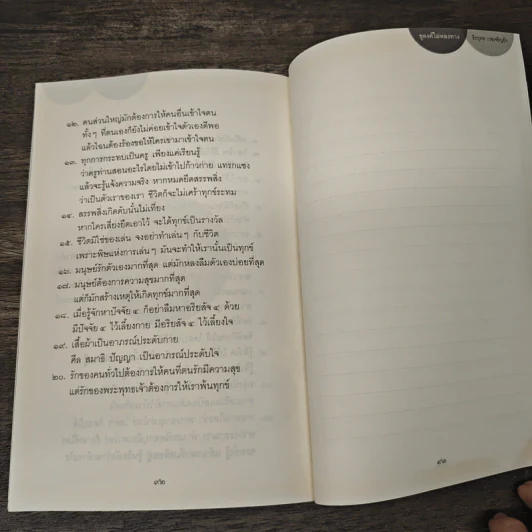 ๑๒. คนส่วนใหญ่มักต้องการให้คนอื่นเข้าใจตน
ทั้งๆ ที่ตนเองก็ยังไม่ค่อยเข้าใจตัวเองดีพอ
แล้วไฉนต้องร้องขอให้ใครเขามาเข้าใจตน
๑๓. ทุกการกระทบเป็นครู เพียงแค่เรียนรู้
ว่าครูท่านสอนอะไรโดยไม่เข้าไปก้าวก่าย แทรกแซง
แล้วจะรู้แจ้งความจริง หากหมดยึดสรรพสิ่ง
ว่าเป็นตัวเราของเรา ชีวิตก็จะไม่เคร้าทุกข์ระทม
๑๔. สรรพสิ่งเกิดดับนั้นไม่เที่ยง
หากใครเสี่ยงยึดเอาไว้ จะได้ทุกข์เป็นรางวัล
๑๕. ชีวิตมิใช่ของเล่น จงอย่าทำเล่นๆ กับชีวิต
เพราะพิษแห่งการเล่นๆ มันจะทำให้เรานั้นเป็นทุกข์
๑๖. มนุษย์รักตัวเองมากที่สุด แต่มักหลงลืมตัวเองบ่อยที่สุด
๑๗. มนุษย์ต้องการความสุขมากที่สุด
แต่ก็มักสร้างเหตุให้เกิดทุกข์มากที่สุด
๑๘. เมื่อรู้จักหาปัจจัย ๔ ก็อย่าลืมหาอริยสัจ ๔ ด้วย
มีปัจจัย ๔ ไว้เลี้ยงกาย มีอริยสัจ ๔ ไว้เลี้ยงใจ
๑๙. เสื้อผ้าเป็นอาภรณ์ประดับกาย
ศีล สมาธิ ปัญญา เป็นอาภรณ์ประดับใจ
๒๐. รักของคนทั่วไปต้องการให้คนที่ตนรักมีความสุข
แต่รักของพระพุทธเจ้าต้องการให้เราพ้นทุกข์